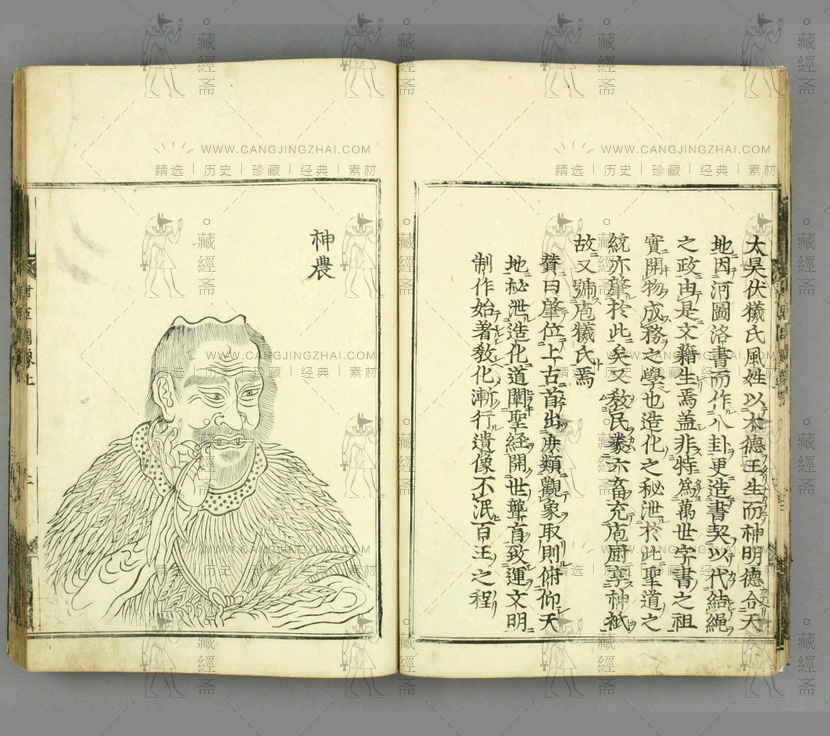 太昊伏犧氏風姓以木德王生而神明德合天
地因河圖洛書而作八卦更造書契以代結繩
之政由是文籍生焉蓋非特爲萬世字書之祖
實開物成務之學也造化之秘泄於此聖道之
統亦肇於此矣又敎民豢六畜充庖厨享神祇
故又號庖犧氏焉
贊曰肇位上古首出庶類觀象取則俯仰天
地秘泄造化道闡聖經開世聾盲致運文明
制作始著敎化漸行遺像不泯百王之程
神農
君臣圖像上
藏經斋
WWW.CANGJINGZHAI.COM
精选 | 历史 | 珍藏 | 经典 | 素材